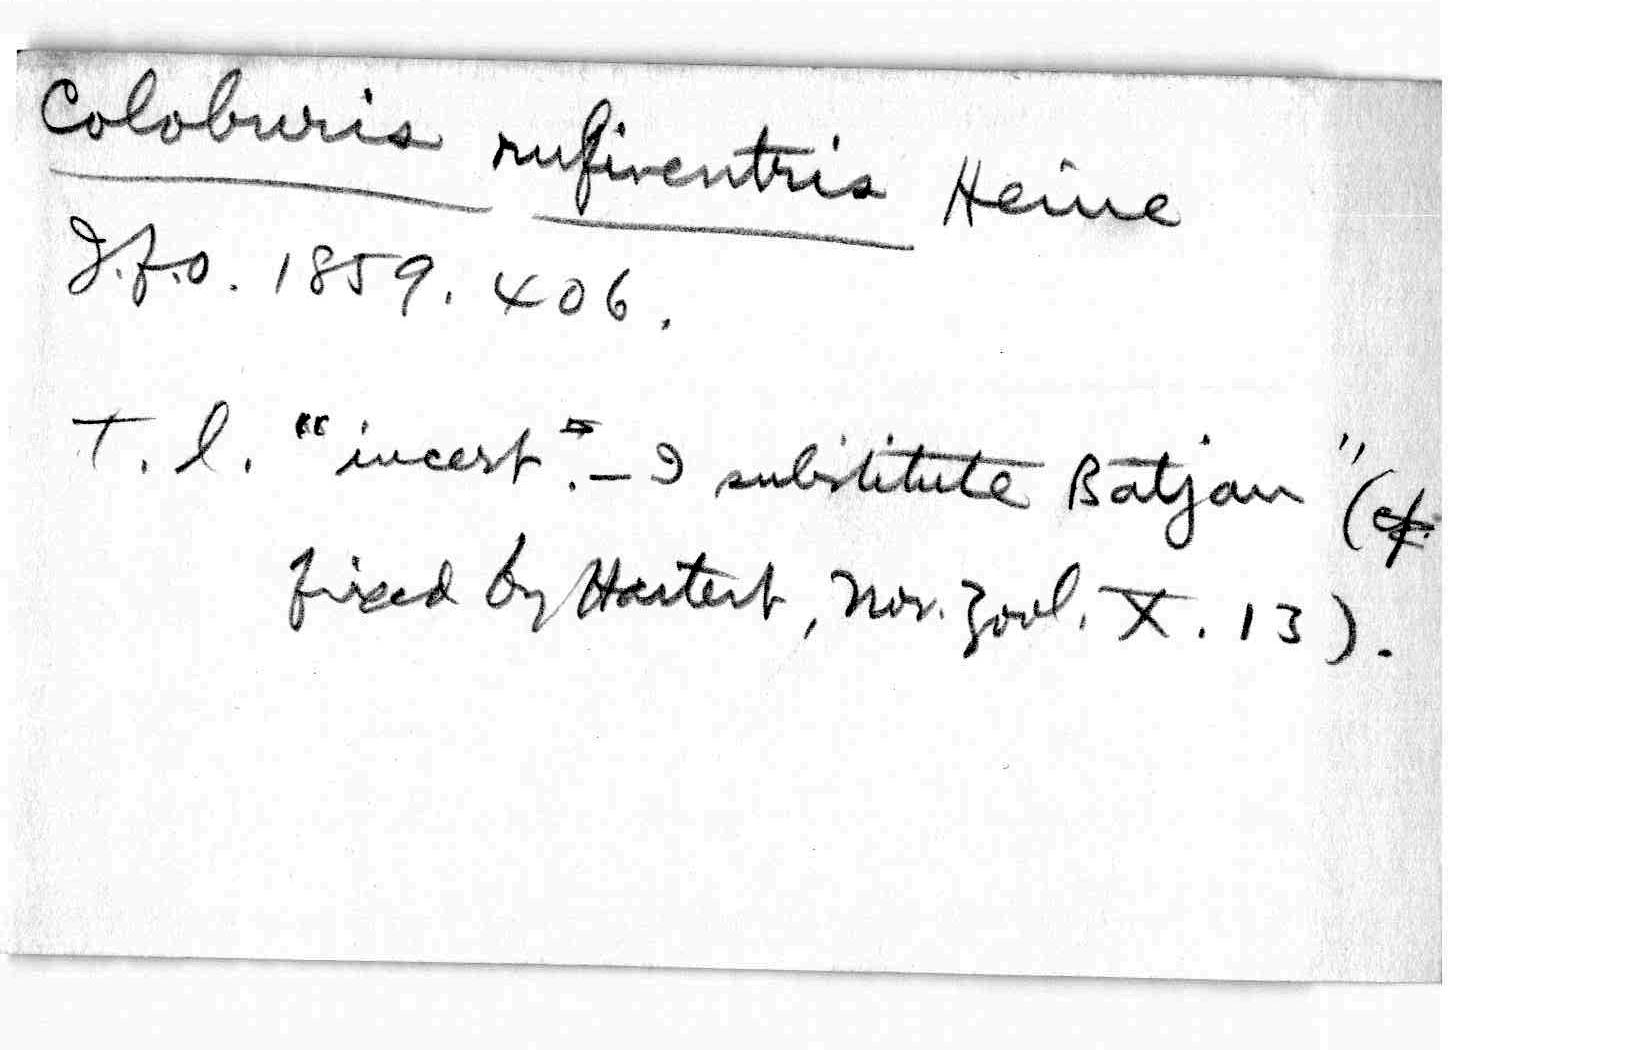 Coloburis rufiventris Heine
J.f.O. 1859. 406.
T. l. "incert." – I substitute Batjan" (
fixed by Hartert, Nov. Zool. X. 13).